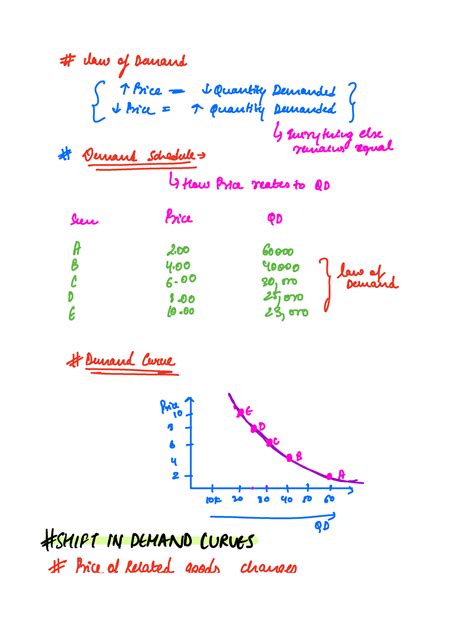 # Law of Demand
↑ Price = ↓ Quantity Demanded
↓ Price = ↑ Quantity Demanded
↳ Everything else
remains equal
# Demand Schedule →
↳ How Price relates to QD
Price QD
A 2.00 60000
B 4.00 40000
C 6.00 30,000
D 8.00 25,000
E 10.00 23,000
Law of
Demand
# Demand Curve
Price
10 E
8 D
6 C
4 B
2 A
10k 20 30 40 50 60
QD
#SHIFT IN DEMAND CURVES
# Price of Related goods changes